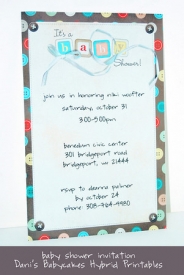 It's a
baby
Shower!
join us in honoring nikki woffter
saturday, october 31
3:00-5:00pm
benedum civic center
301 bridgeport road
bridgeport, wv 24444
rsvp to deanna palmer
by october 24
phone 308-964-9980
baby shower invitation
Dani's Babycakes Hybrid Printables